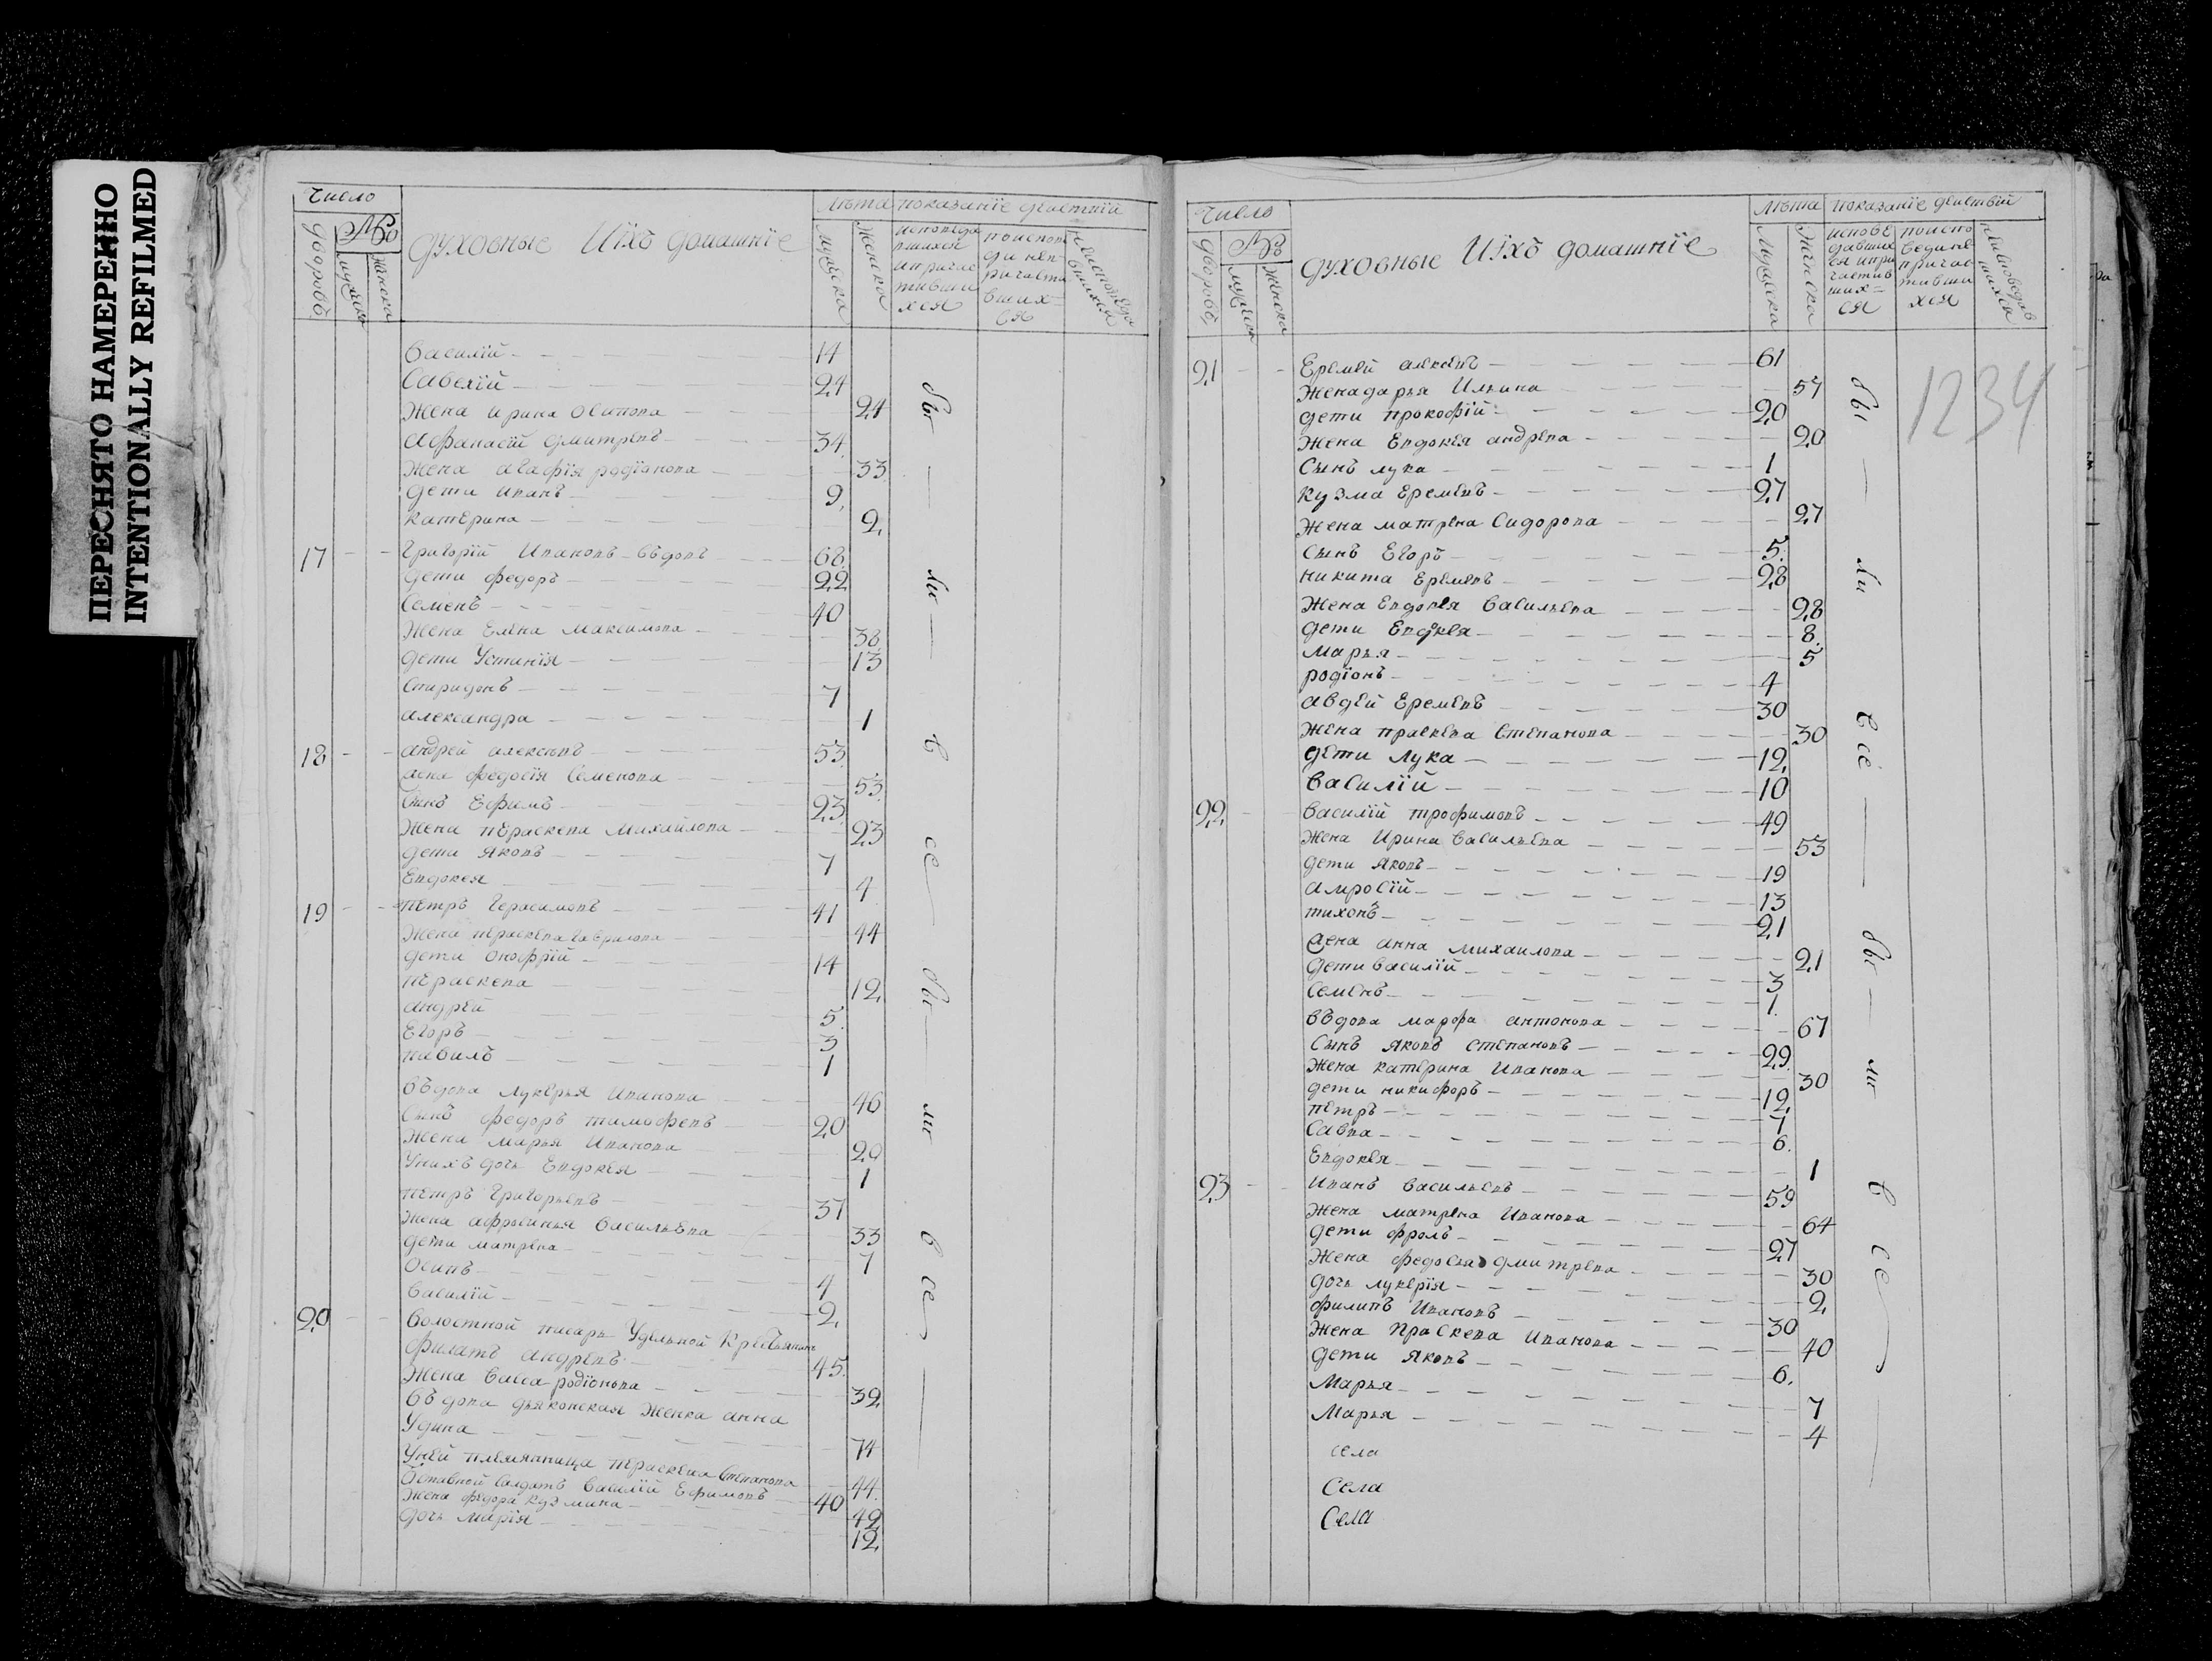 ПЕРЕСНЯТО НАМЕРЕННО
INTENTIONALLY REFILMED
Число
дворовъ
мужеска
женска
духовные Ихъ домашнїе
Лѣта
мужеска
женска
показанїе дѣиствїй
исповѣда
вшихся
и причас
тивши
хся
по испов
ди неп
ричаста
вших=
ся
неисповѣда
вшихся
василїй 14
Савелїй 24
жена ирина осипова 24
афанасїй дмитревъ 34
жена агафїя родїонова 33
дети иванъ 9
катерина 2
17 григорїй ивановъ въдовъ 68
дети федоръ 22
Семенъ 40
жена Елена максимова 38
дети Устинїя 13
Спиридонъ 7
александра 1
18 андрей алексѣевъ 53
жена федосїя Семенова 53
Сынъ Ефимъ 23
жена пераскева михайлова 23
дети яковъ 7
Евдокея 4
19 петръ герасимовъ 41
жена пераскева гаврилова 44
дети онофрїй 14
пераскева 12
андрей 5
Егоръ 3
павилъ 1
въдова лукерья Иванова 46
Сынъ федоръ тимофевъ 20
жена марья Иванова 20
Унихъ дочь Евдокея 1
петръ григорьевъ 37
жена афросинья васильева 33
дети матрена 7
Осипъ 4
василїй 2
20 волостной писарь Удельной Крестьянинъ
филатъ андревъ 45
жена васса родїонова 39
въдова дьяконская женка анна
Удина 74
Уней племянница пераскева Степанова 44
Оставной Салдатъ василїй Ефимовъ 40
жена федора кузмина 42
дочь марїя 12
бы ли в се бы ли в се
Число
дворовъ
мужеска
женска
духовные Ихъ домашнїе
Лѣта
Мужеска
Женска
показанїе дѣиствїй
исповѣ
давших
ся и при
частив
ших=
ся
по испо
веди не
причас
тивши
хся
неисповедав
шихся
1234
21 Еремей алексѣевъ 61
Жена дарья Ильина 57
дети прокофїй 20
жена Евдокея андрева 20
Сынъ лука 1
кузма Еремевъ 27
жена матрена Сидорова 27
Сынъ Егоръ 5
никита Еремевъ 28
жена Евдокея васильева 28
дети Евдокея 8
марья 5
родїонъ 4
авдей Еремевъ 30
жена праскева Степанова 30
дети Лука 12
василїй 10
22 василїй трофимовъ 49
жена Ирина васильева 53
дети яковъ 19
амросїй 13
тихонъ 21
жена анна михаилова 21
дети василїй 3
Семенъ 1
въдова марфа антонова 67
Сынъ яковъ степановъ 29
жена катерина Иванова 30
дети никифоръ 12
петръ 7
Савва 6
Евдокея 1
23 Иванъ васильевъ 59
жена матрена Иванова 64
дети фролъ 27
жена федосья дмитрева 30
дочь лукерїя 2
филипъ Ивановъ 30
жена праскева Иванова 40
дети яковъ 6
марья 7
марья 4
села
Села
Села
бы ли в се бы ли в се